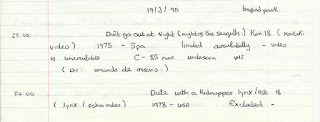 19/3/95
beyond park.
£5.00 Don't go out at Night (night of the seagulls) Rem 18 (
video) 1975 - Spa limited availability - video
is unavailable C - 85 runs undersewn VHS
(Dir: amando de ossorio.)
£4.00 Date with a Kidnapper lynx/ase 18
(lynx / astra video) 1978 - USA Excluded -